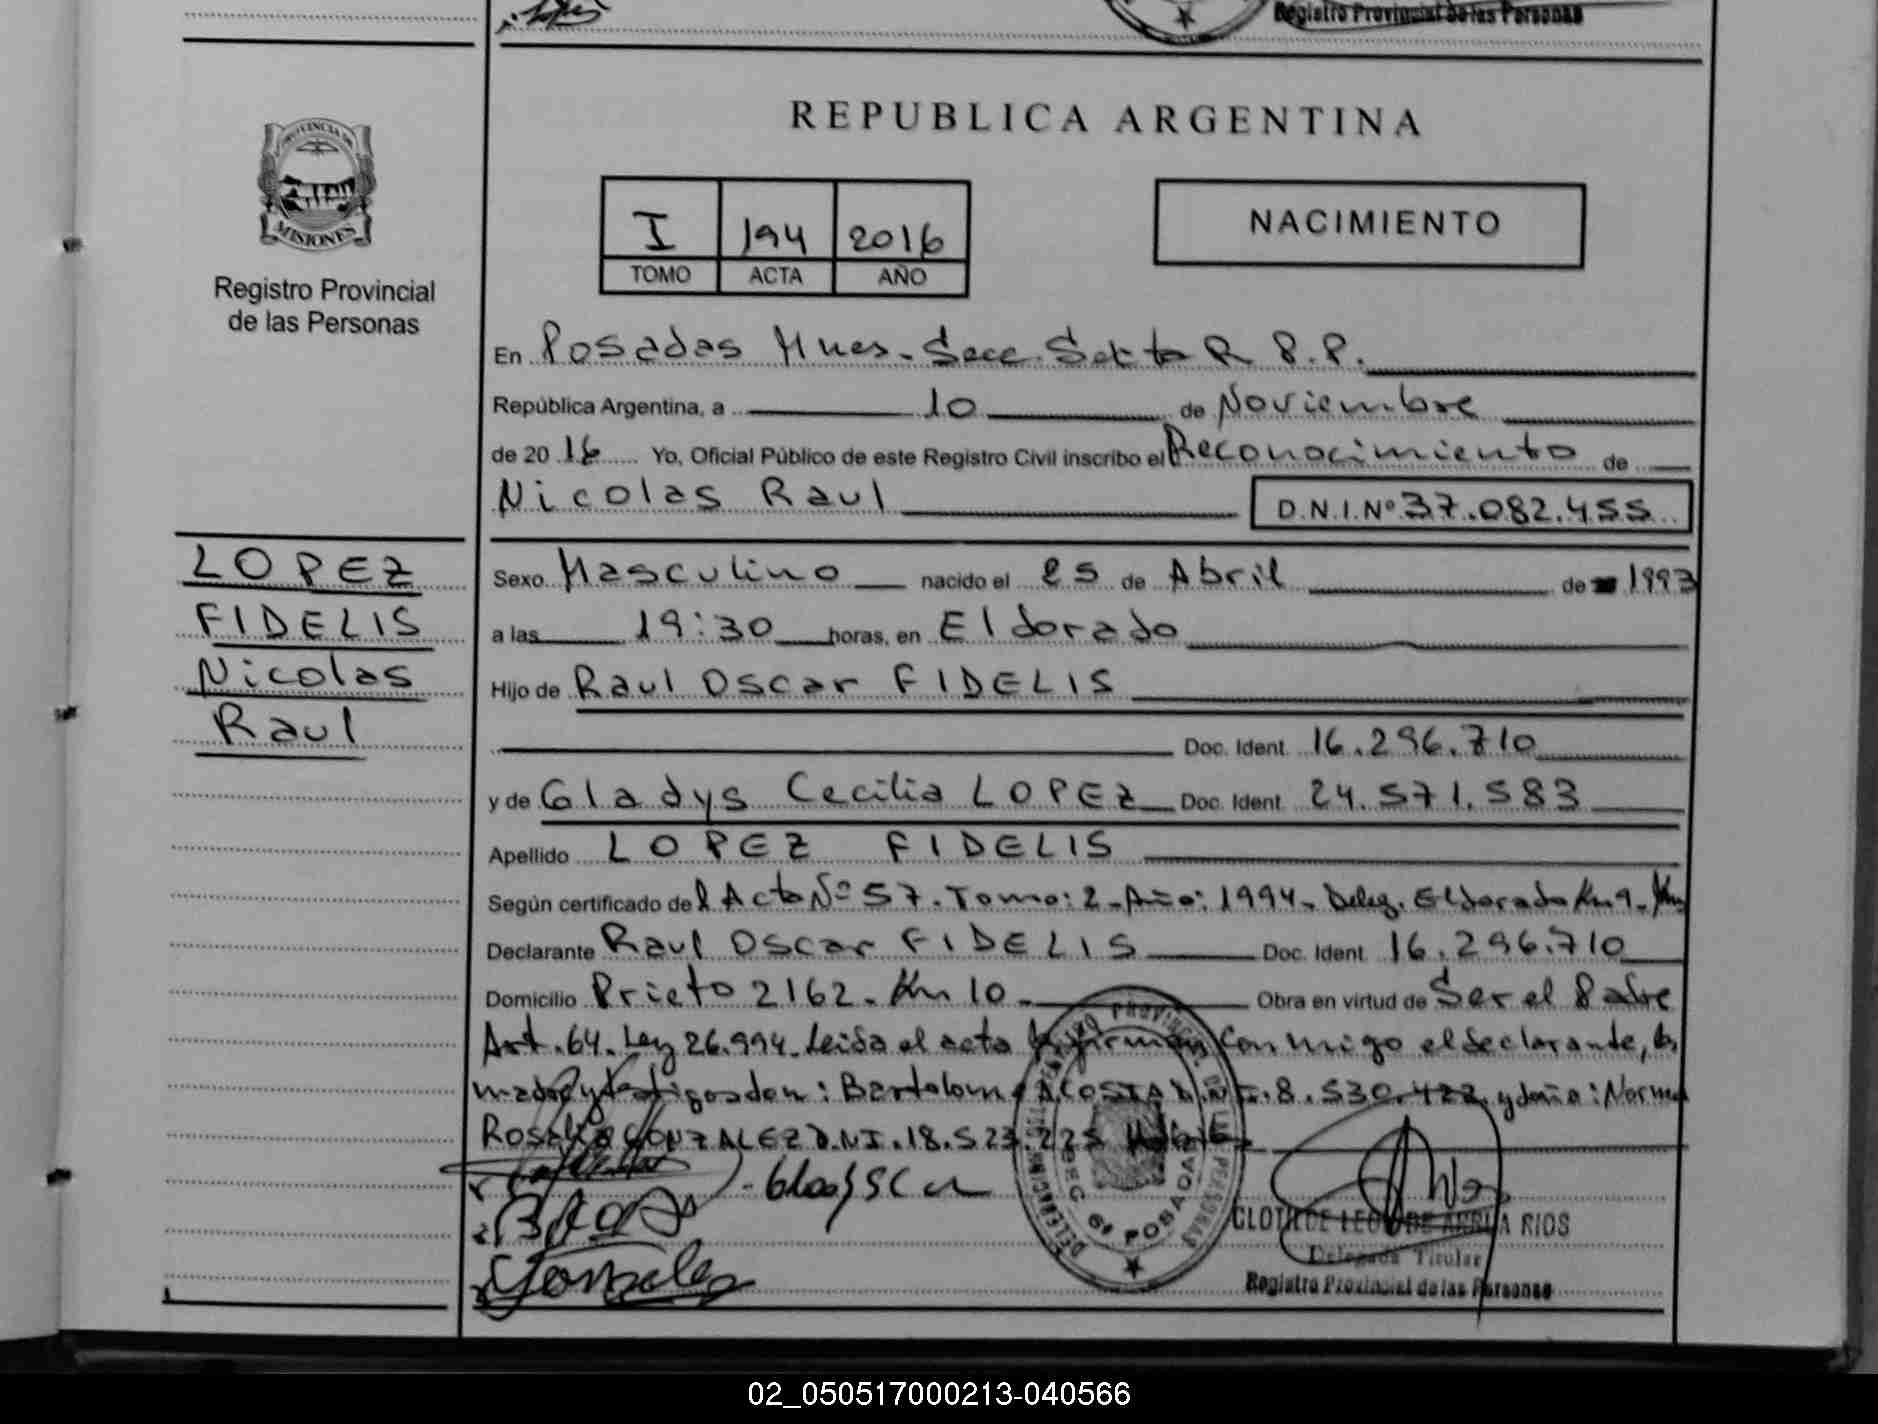 Registro Provincial de las Personas
PROVINCIA DE
MISIONES
Registro Provincial
de las Personas
LOPEZ
FIDELIS
Nicolas
Raul
REPUBLICA ARGENTINA
I 194 2016
TOMO ACTA AÑO
NACIMIENTO
En Posadas Mnes. Secc. Sexta R.P.P.
República Argentina, a 10 de Noviembre
de 2016 Yo, Oficial Público de este Registro Civil inscribo el Reconocimiento de
Nicolas Raul D.N.I.Nº 37.082.455
Sexo Masculino nacido el 25 de Abril de 1993
a las 19:30 horas, en Eldorado
Hijo de Raul Oscar FIDELIS
Doc. Ident. 16.296.710
y de Gladys Cecilia LOPEZ Doc. Ident. 24.571.583
Apellido LOPEZ FIDELIS
Según certificado del Acta Nº 57. Tomo: 2. Año: 1994. Deleg. Eldorado Km 9.
Declarante Raul Oscar FIDELIS Doc. Ident. 16.296.710
Domicilio Prieto 2162. Km 10. Obra en virtud de Ser el Padre
Art. 64. Ley 26.994. Leida el acta la firman conmigo el declarante, la
madre y testigos don: Bartolome ACOSTA D.N.I. 8.530.422 y doña: Norma
Rosalia GONZALEZ D.N.I. 18.523.225
Gonzalez
SEC 6ª POSADAS
CLOTILDE RIOS
Delegada Titular
Registro Provincial de las Personas
02_050517000213-040566